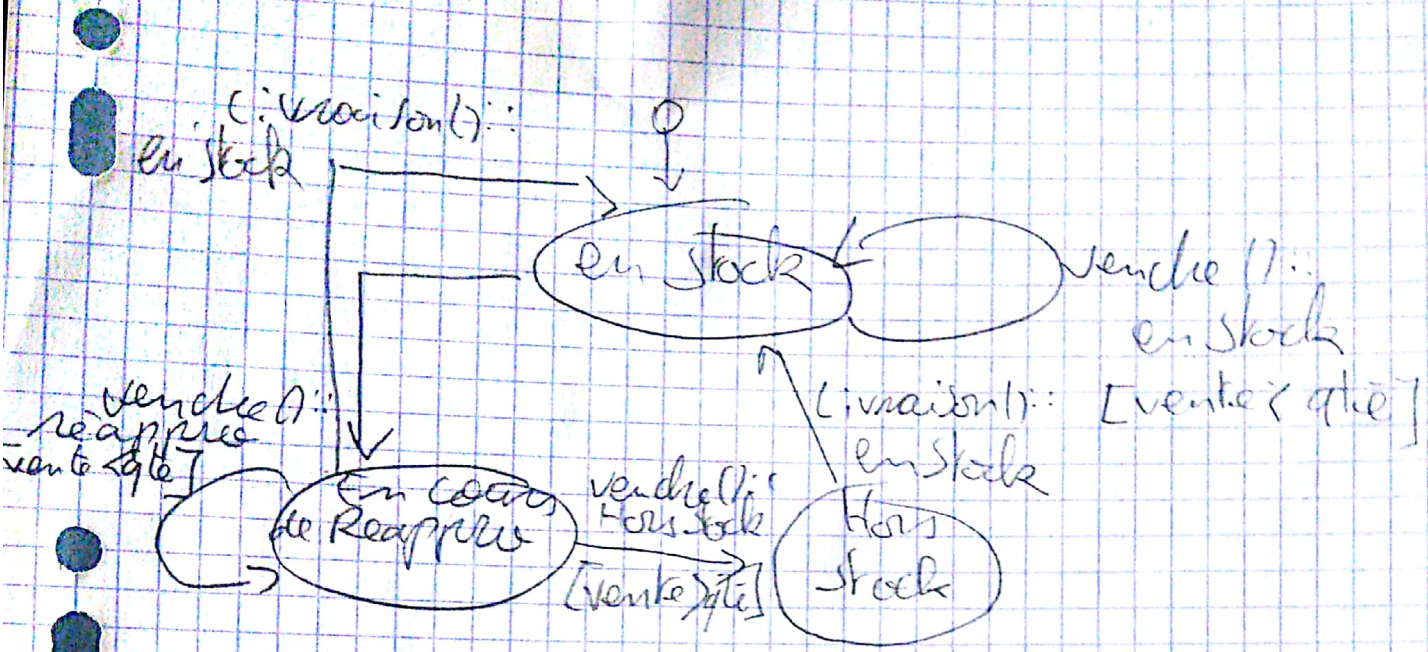 Livraison()::
en stock
en stock
vendre()::
en stock
[vente < qté]
Livraison()::
en stock
vendre()::
réappro
[vente < qté]
En cours
de Reappro
vendre()::
Hors stock
[vente > qté]
Hors
stock